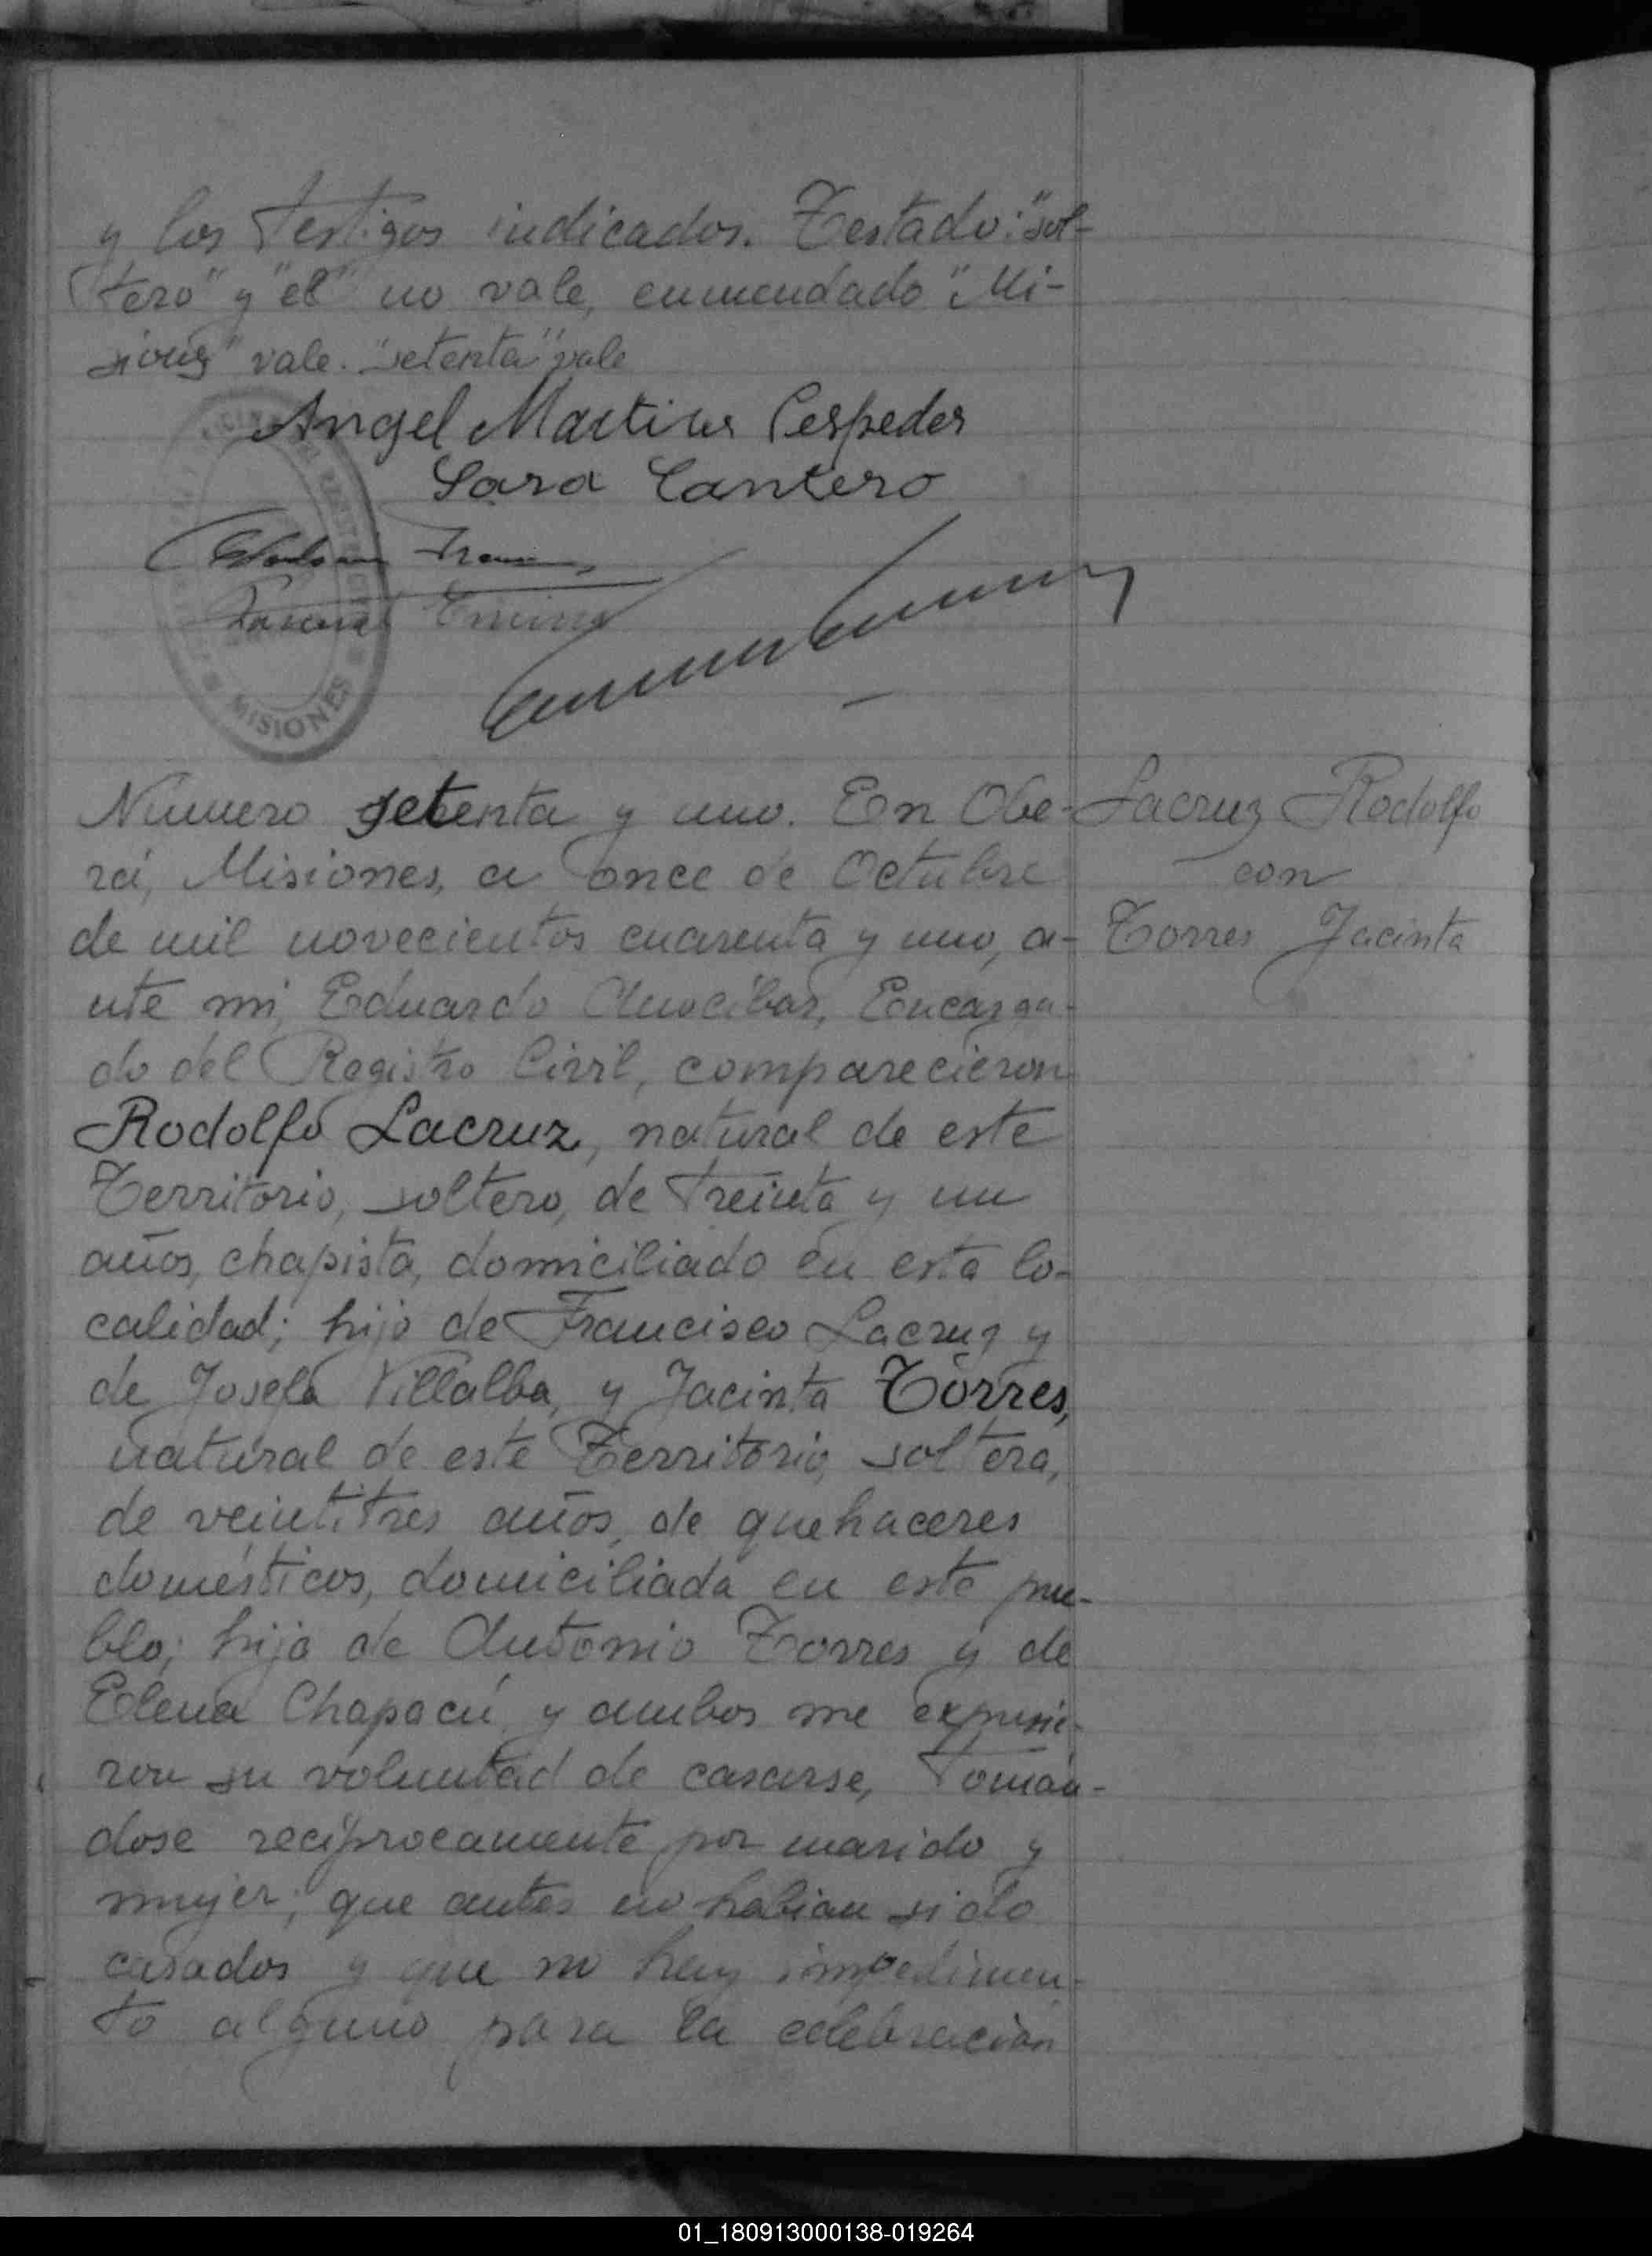 y los testigos indicados. Testado: "sol-
tero" y "el" no vale, enmendado "Mi-
siones" vale. "setenta" vale
Angel Martires Cespedes
Sara Cantero
MISIONES
Numero setenta y uno. En Obe-
rá, Misiones, a once de Octubre
de mil novecientos cuarenta y uno, a-
nte mi, Eduardo Anocibar, Encarga-
do del Registro Civil, comparecieron
Rodolfo Lacruz, natural de este
Territorio, soltero, de treinta y un
años, chapista, domiciliado en esta lo-
calidad; hijo de Francisco Lacruz y
de Josefa Villalba, y Jacinta Torres,
natural de este Territorio, soltera,
de veintitres años, de quehaceres
domésticos, domiciliada en este pue-
blo; hija de Antonio Torres y de
Elena Chapacú, y ambos me expusie-
ron su voluntad de casarse, toman-
dose reciprocamente por marido y
mujer; que antes no habian sido
casados y que no hay impedimen-
to alguno para la celebracion
Lacruz Rodolfo
con
Torres Jacinta
01_180913000138-019264